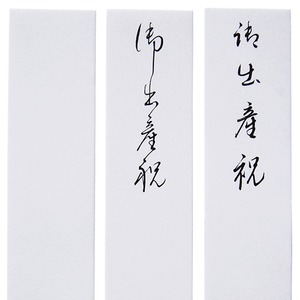 御出産祝
御出産祝